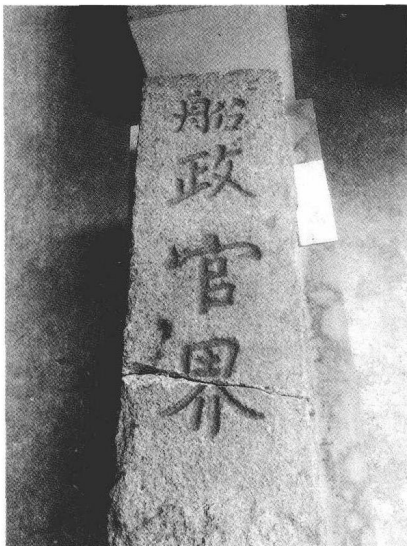 船政官界